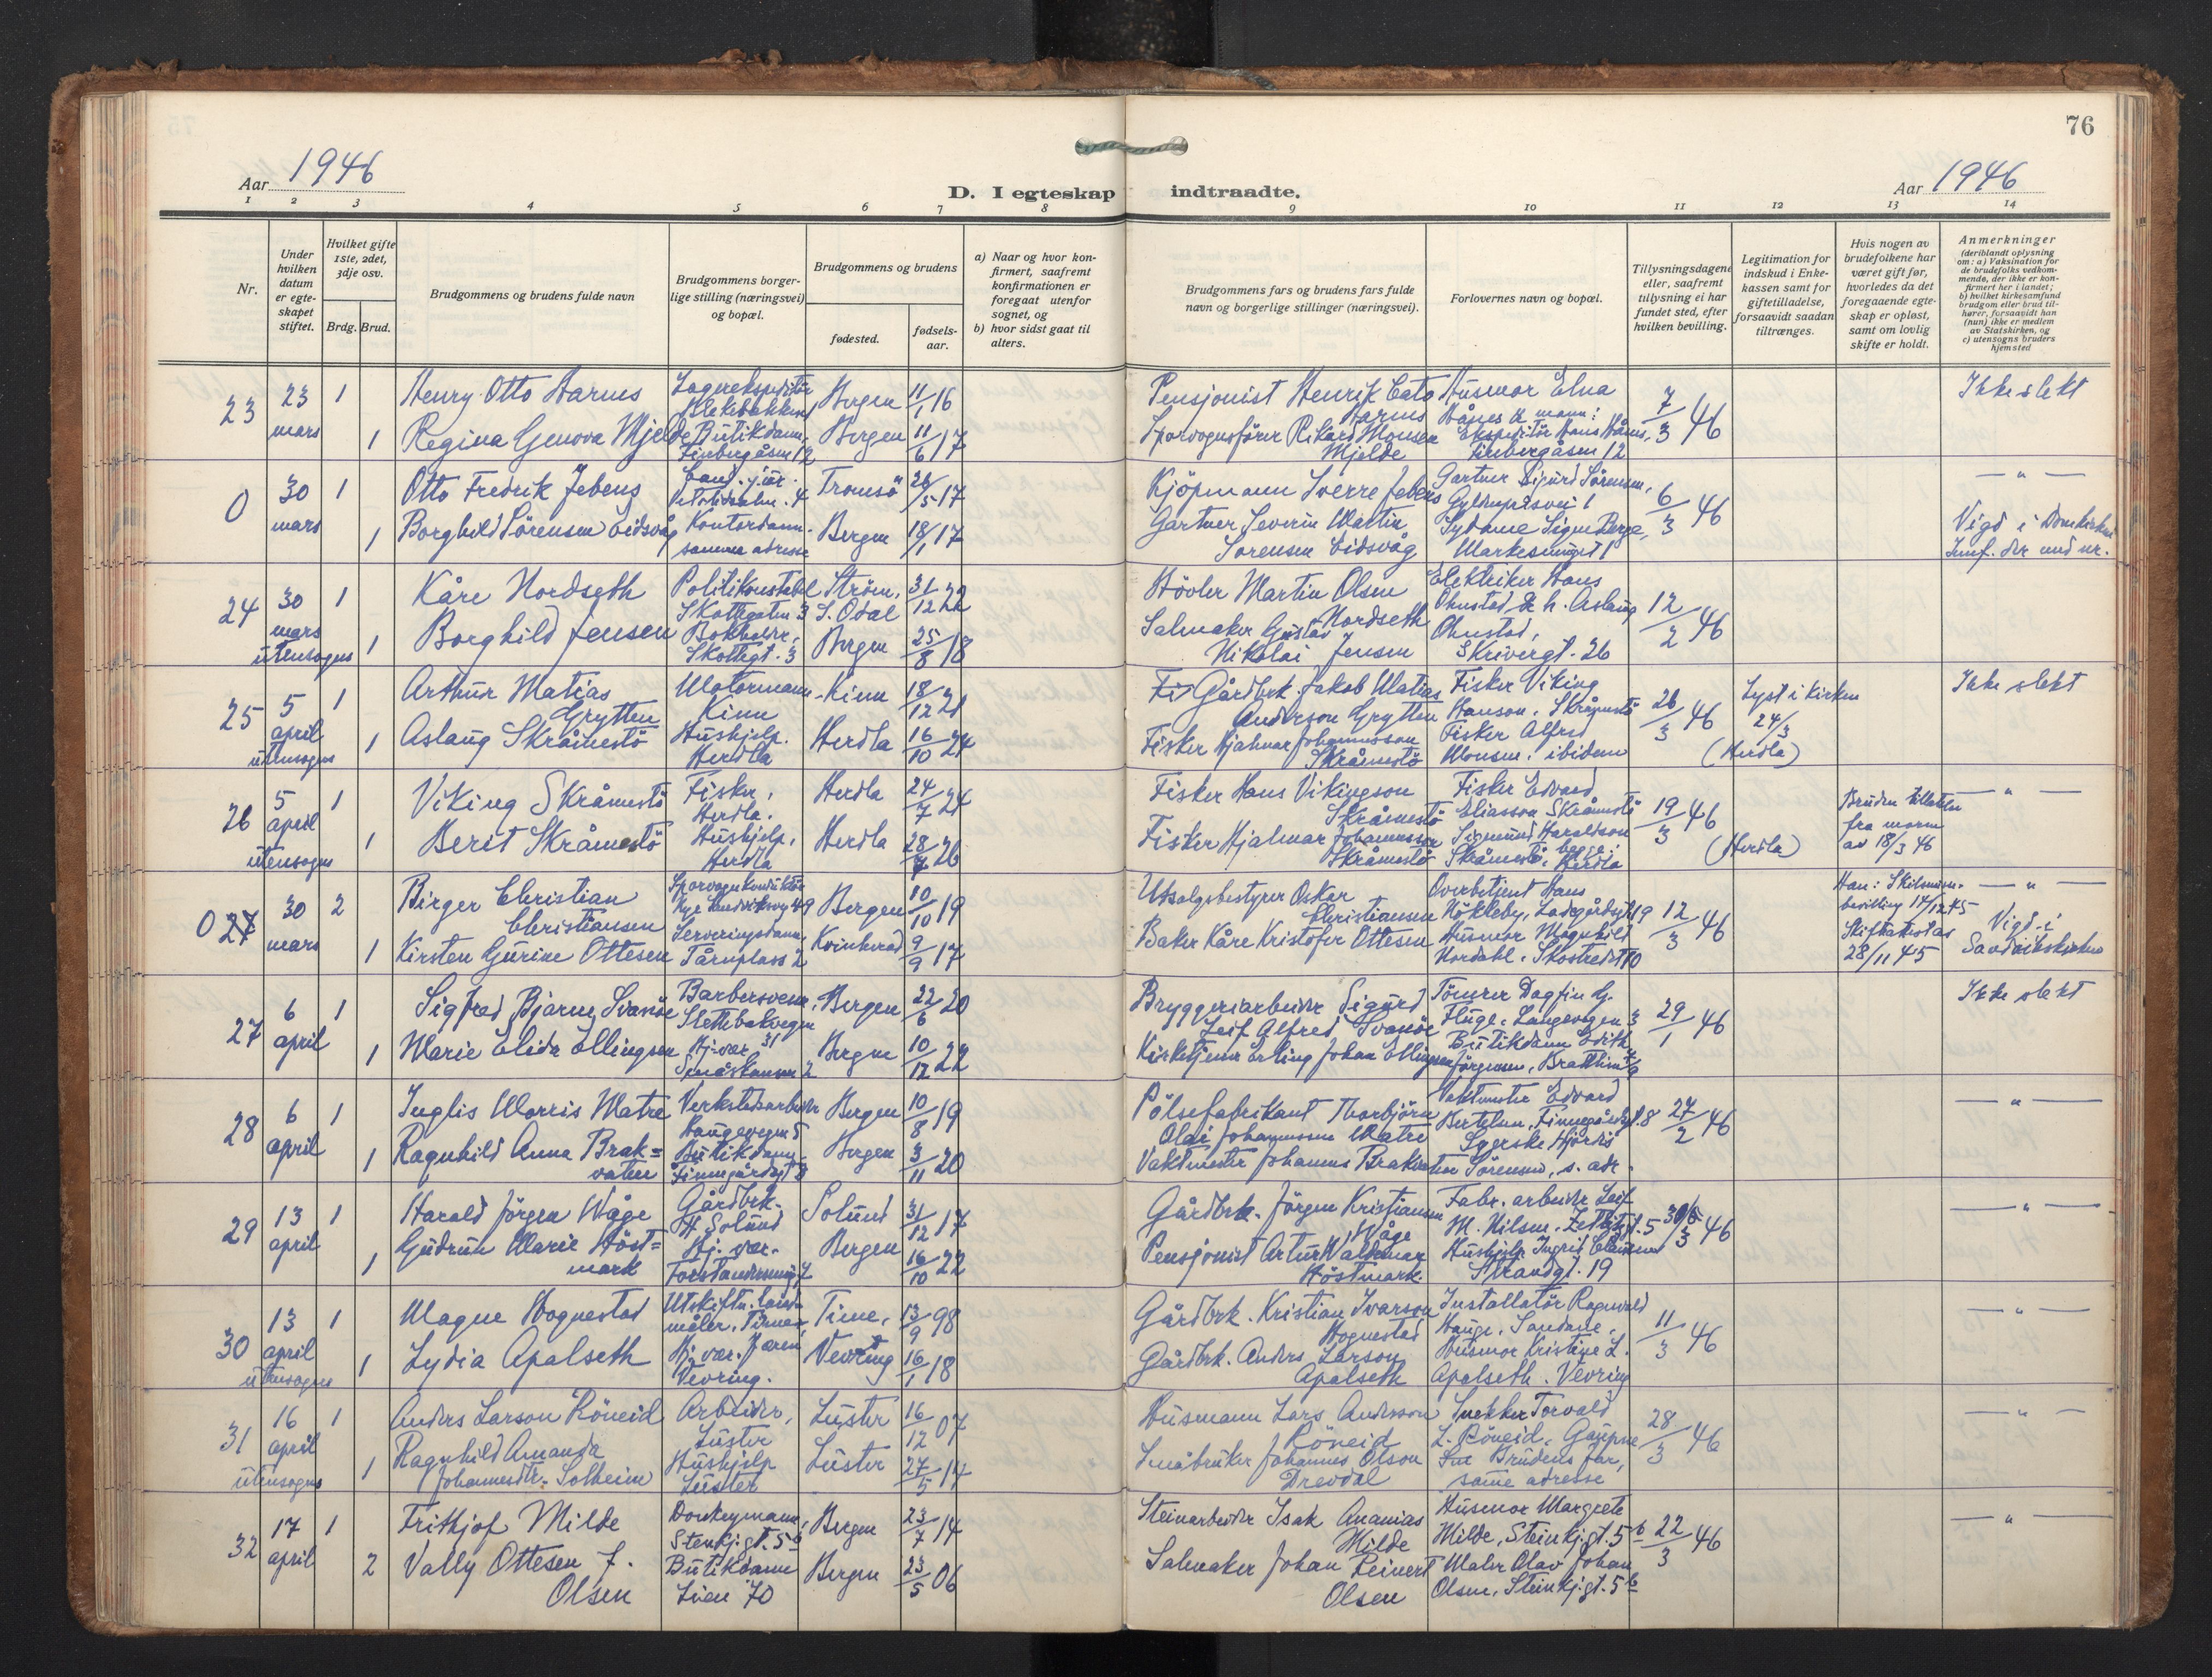 76
Aar 1946
D. I egteskap indtraadte.
Aar 1946
1 2 3 4 5 6 7 8 9 10 11 12 13 14
Nr.
Under hvilken datum er egte-skapet stiftet.
Hvilket gifte 1ste, 2det, 3dje osv.
Brdg. Brud.
Brudgommens og brudens fulde navn
Brudgommens borger-lige stilling (næringsvei) og bopæl.
Brudgommens og brudens
fødested.
fødsels-aar.
a) Naar og hvor kon-firmert, saafremt konfirmationen er foregaat utenfor sognet, og
b) hvor sidst gaat til alters.
Brudgommens fars og brudens fars fulde navn og borgerlige stillinger (næringsvei).
Forlovernes navn og bopæl.
Tillysningsdagene eller, saafremt tillysning ei har fundet sted, efter hvilken bevilling.
Legitimation for indskud i Enke-kassen samt for giftetilladelse, forsaavidt saadan tiltrænges.
Hvis nogen av brudefolkene har været gift før, hvorledes da det foregaaende egte-skap er opløst, samt om lovlig skifte er holdt.
Anmerkninger (deriblandt oplysning om: a) Vaksination for de brudefolks vedkom-mende, der ikke er kon-firmert her i landet; b) hvilket kirkesamfund brudgom eller brud til-hører, forsaavidt han (hun) ikke er medlem av Statskirken, og c) utensogns bruders hjemsted
23 23 mars 1 Henry Otto Harms Lagerekspeditör Bergen 11/1 16
1 Regina Genova Mjelde Butikdame, Finbergåsen 12 Bergen 11/6 17
Pensjonist Henrik Cato Harms
Sporvognsfører Rikard Monsen Mjelde
Husmor Elna Hånes & mann: Ekspeditör Hans Hånes, Finbergåsen 12
7/3 46
Ikke slekt
0 30 mars 1 Otto Fredrik Jebens Cand. jur. Tromsö 26/5 17
1 Borghild Sörensen Eidsvåg Kontordame. samme adresse Bergen 18/1 17
Kjöpmann Sverre Jebens
Gartner Severin Martin Sörensen Eidsvåg
Gartner Sigurd Sörensen, 1
Sydame Signe Berge, 1
6/3 46
— " —
Vigd i Domkirken
Jmf. der med nr.
24 30 mars utensogns 1 Kåre Nordseth Politikonstabel Skottegaten 3 Ström, S. Odal 31/12 22
1 Borghild Jensen Bokholder, Skottegt. 3 Bergen 25/8 18
Hövler Martin Olsen Nordseth
Salmaker Gustav Nikolai Jensen
Elektriker Hans Ohnstad & h. Aslaug Ohnstad, Skrivergt. 26
12/2 46
25 5 april utensogns 1 Arthur Matias Grytten Motormann Kinn Kinn 18/12 21
1 Aslaug Skråmestö Hushjelp. Herdla Herdla 16/10 24
Gårdbrk. Jakob Matias Anderson Grytten
Fisker Hjalmar Johannesson Skråmestö
Fisker Viking Hanson, Skråmestö
Fisker Alfred Monsen. ibidem
26/3 46
Lyst i kirken 24/3
(Herdla)
Ikke slekt
26 5 april utensogns 1 Viking Skråmestö Fisker, Herdla. Herdla 24/7 24
1 Berit Skråmestö Hushjelp, Herdla Herdla 28/7 26
Fisker Hans Vikingson Skråmestö
Fisker Hjalmar Johannesson Skråmestö
Fisker Edvard Eliasson Skråmestö
Sigmund Haraldson Skråmestö, begge: Herdla
19/3 46
(Herdla)
Bruden tillatelse fra moren av 18/3 46
— " —
0 27 30 mars 2 Birger Christian Christiansen Sporvognkonduktör Nye Sandviksvei 49 Bergen 10/10 19
1 Kirsten Gurine Ottesen Serveringsdame, Tårnplass 2 Kvinherad 9/9 17
Utsalgsbestyrer Oskar Christiansen
Baker Kåre Kristofer Ottesen
Overbetjent Hans Hökleby, Ladegårdsgt. 19
Husmor Magnhild Nordahl. Skostredet 10
12/3 46
Han: Skilsmisse-bevilling 14/12 45
Skifteattest av 28/11 45
— " —
Vigd i Sandvikskirken
27 6 april 1 Sigfred Bjarne Svanöe Barbersvenn, Slettebakvegen 31 Bergen 22/6 20
1 Marie Elida Ellingsen Hj. vær. 2 Bergen 10/12 22
Bryggeriarbeider Sigurd Leif Alfred Svanöe
Kirketjener Erling Johan Ellingsen
Tömrer Dagfin G. Fluge, Langevegen 3
Butikdame Edith Jörgensen,
29/1 46
Ikke slekt
28 6 april 1 Inglis Morris Matre Verkstedsarbeider Haugevegen 5 Bergen 10/8 19
1 Ragnhild Anna Brak=vatne Butikdame. Finnegårdsgt 8 Bergen 3/11 20
Pölsefabrikant Thorbjörn Olai Johannessen Matre
Vaktmester Johannes Brakvatne
Vaktmester Edvard Bertelsen, Finnegårdsgt. 8
Syerske Hjördis Sörensen, s. adr.
27/2 46
— " —
29 13 april 1 Harald Jörgen Våge Gårdbrk. Solund Solund 31/12 17
1 Gudrun Marie Höst=mark Hj. vær. Bergen 16/10 22
Gårdbrk. Jörgen Kristiansen Våge
Pensjonist Artur Waldemar Höstmark.
Fabr. arbeider Leif M. Nilsen, 5
Hushjelp Ingrid Strandgt. 19
30/3 46
— " —
30 13 april utensogns 1 Magne Hognestad Utskiftn. land-måler, Time, 13/9 98
1 Lydia Apalseth Hj. vær. Vevring. Vevring 16/1 18
Gårdbrk. Kristian Ivarson Hognestad
Gårdbrk. Anders Larson Apalseth
Installatör Ragnvald Hauge, Sandane.
Husmor Kristine L. Apalseth. Vevring
11/3 46
— " —
31 16 april utensogns 1 Anders Larson Röneid Arbeider, Luster Luster 16/12 07
1 Ragnhild Amanda Johannesdtr. Solheim Hushjelp Luster Luster 27/5 14
Husmann Lars Andersson Röneid
Småbruker Johannes Olson Drevdal
Snekker Torvald L. Röneid, Gaupne
Brudens far, same adresse
28/3 46
— " —
32 17 april 1 Frithjof Milde Donkeymann, Stenkj. gt. 5b Bergen 23/7 14
2 Vally Ottesen f. Olsen Butikdame Lien 70 Bergen 23/5 06
Steinarbeider Isak Ananias Milde
Salmaker Johan Reinert Olsen
Husmor Margrete Milde, Steinkj. gt. 5b
Maler Olav Johan Olsen, Steinkj. gt. 5b
22/3 46
— " —